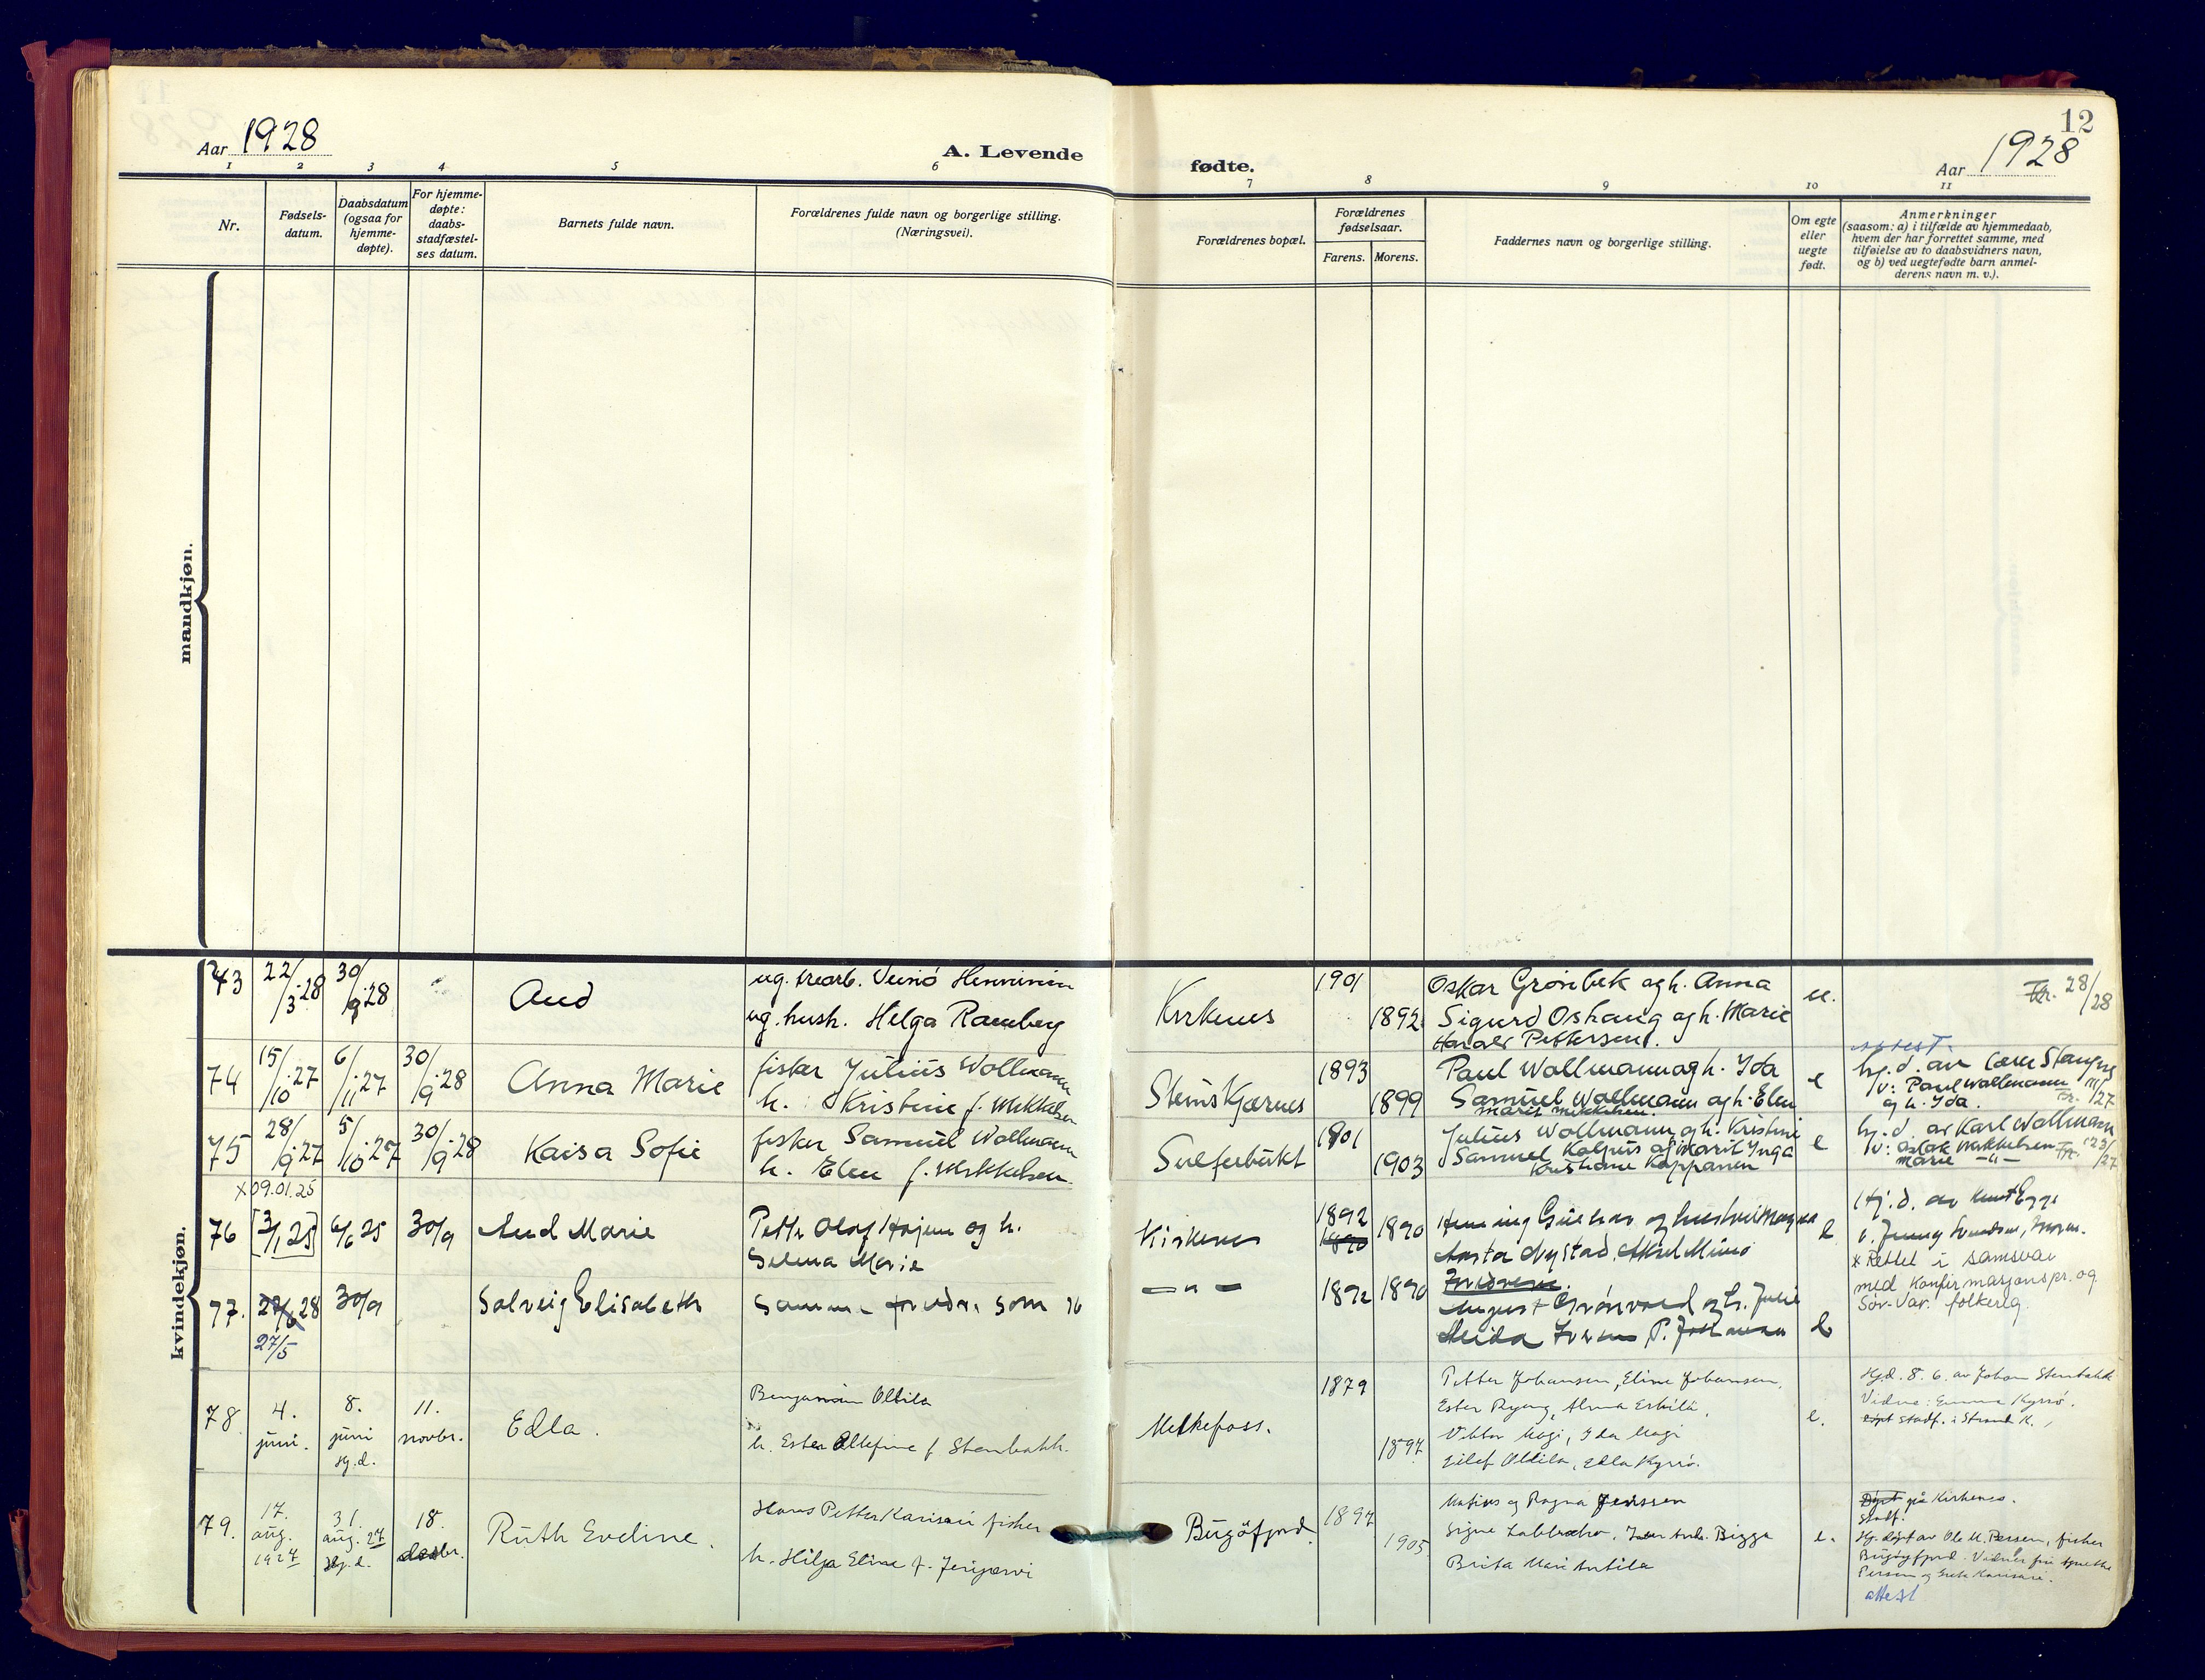 12
Aar 1928
A. Levende
fødte.
Aar 1928
1 2 3 4 5 6 7 8 9 10 11
Nr.
Fødsels-
datum.
Daabsdatum
(ogsaa for
hjemme-
døpte).
For hjemme-
døpte:
daabs-
stadfæstel-
ses datum.
Barnets fulde navn.
Forældrenes fulde navn og borgerlige stilling.
(Næringsvei).
Forældrenes bopæl.
Forældrenes
fødselsaar.
Farens. Morens.
Faddernes navn og borgerlige stilling.
Om egte
eller
uegte
født.
Anmerkninger
(saasom: a) i tilfælde av hjemmedaab,
hvem der har forrettet samme, med
tilføielse av to daabsvidners navn,
og b) ved uegtefødte barn anmel-
derens navn m. v.).
mandkjøn.
kvindekjøn.
73
22/3.28
30/9.28
Aud
ug. Henninen
ug. hush. Helga Ramberg
Kirkenes
1901
1892
Oskar Grønbek og h. Anna
Sigurd Oshaug og h. Marie
Harald Pettersen.
u.
Fr. 28/28
74
15/10.27
6/11.27
30/9.28
Anna Marie
fisker Julius Wollmann
h. Kristine f. Mikkelsen
Steinskjærnes
1893
1899
Paul Wollmann og h. Ida
Samuel Wollmann og h. Elen
Marit Mikkelsen.
e
attest.
hj. d. av Stangnes
v: Paul Wollmann
og h. Ida.
Fr. 111/27
75
28/9.27
5/10.27
30/9.28
Kaisa Sofie
fisker Samuel Wollmann
h. Elen f. Mikkelsen.
1901
1903
Julius Wollmann og h. Kristine
Samuel og Marit Inga
Kristiane
e
hj. d. av Karl Wollmann
v: Aslak Mikkelsen
Marie –"–
Fr. 123/27
x 09.01.25
76
[3/1 25]
6/6 25
30/9
Aud Marie
Petter Olaf Hojem og h.
Selma Marie
Kirkenes
1892
1890
1890
Henning og hustru Magna
Aasta Nystad,
e
Hj. d. av Knut Egge
v. Jenny
x Rettet i samsvar
med konfirmasjonspr. og
Sør-Var. folkereg.
77.
27/6 28
27/5
30/9
Solveig Elisabeth
Samme foreldre som 76
– " –
1892
1890
Foreldrene.
August Grønvold og h. Julie
P. Johansen
e
78
4.
juni.
8.
juni
Hj. d.
11.
novbr.
Edla.
Benjamin Oltila
h. Ester f. Stenbakk.
Melkefoss.
1879
1897
Petter Johansen, Eline Johansen,
Ester Ryeng, Alma Erkilä,
Viktor Magi, Ida Magi
Eilef Oltila, Edla Kyrrø.
e.
Hj.d. 8. 6. av Johan Stenbakk
Vidne: Emma Kyrrø.
døpt stadf. i Strand K.
79.
17.
aug.
1927
31.
aug. 27
Hj. d.
18.
desbr.
Ruth Eveline.
Hans Petter Karisari fisker
h. Hilja Elise f. Jerijærvi
Bugøfjord.
1897
1905
Matius og Ragna Jenssen
Bigga
Brita Mari Antila
e.
Døpt på Kirkenes.
Stadf.
Hj. døpt av Ole M. Persen, fisker
Bugøyfjord.
Persen og Karisari.
attest